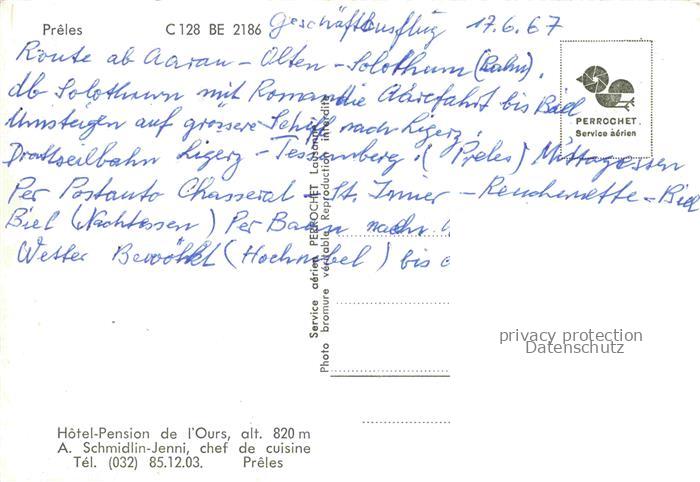 Prêles C 128 BE 2186 Geschäftsausflug 17.6.67
Route ab Aarau - Olten - Solothurn (Bahn),
Ab Solothurn mit Romandie Aarefahrt bis Biel
Umsteigen auf grössere Schiff nach Ligerz,
Drahtseilbahn Ligerz - Tessenberg, (Prêles) Mittagessen
Per Postauto Chasseral - St. Imier - Reuchenette - Biel
Biel (Nachtessen) Per Bahn nach
Wetter Bewölkt (Hochnebel) bis
PERROCHET
Service aérien
Service aérien PERROCHET Lausanne
Photo bromure véritable Reproduction interdite
privacy protection
Datenschutz
Hôtel-Pension de l'Ours, alt. 820 m
A. Schmidlin-Jenni, chef de cuisine
Tél. (032) 85.12.03. Prêles